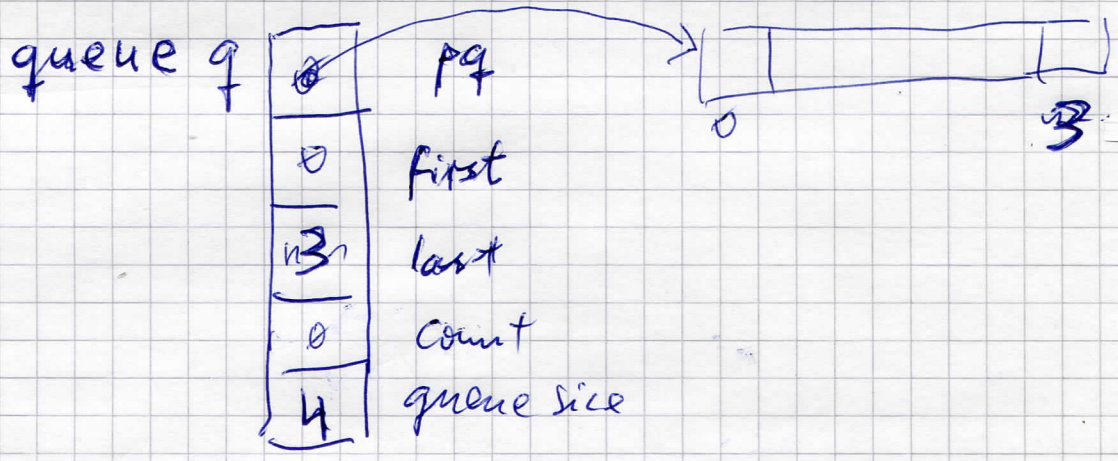 queue q 0 pq
0 3
0 first
3 last
0 count
4 queue sice